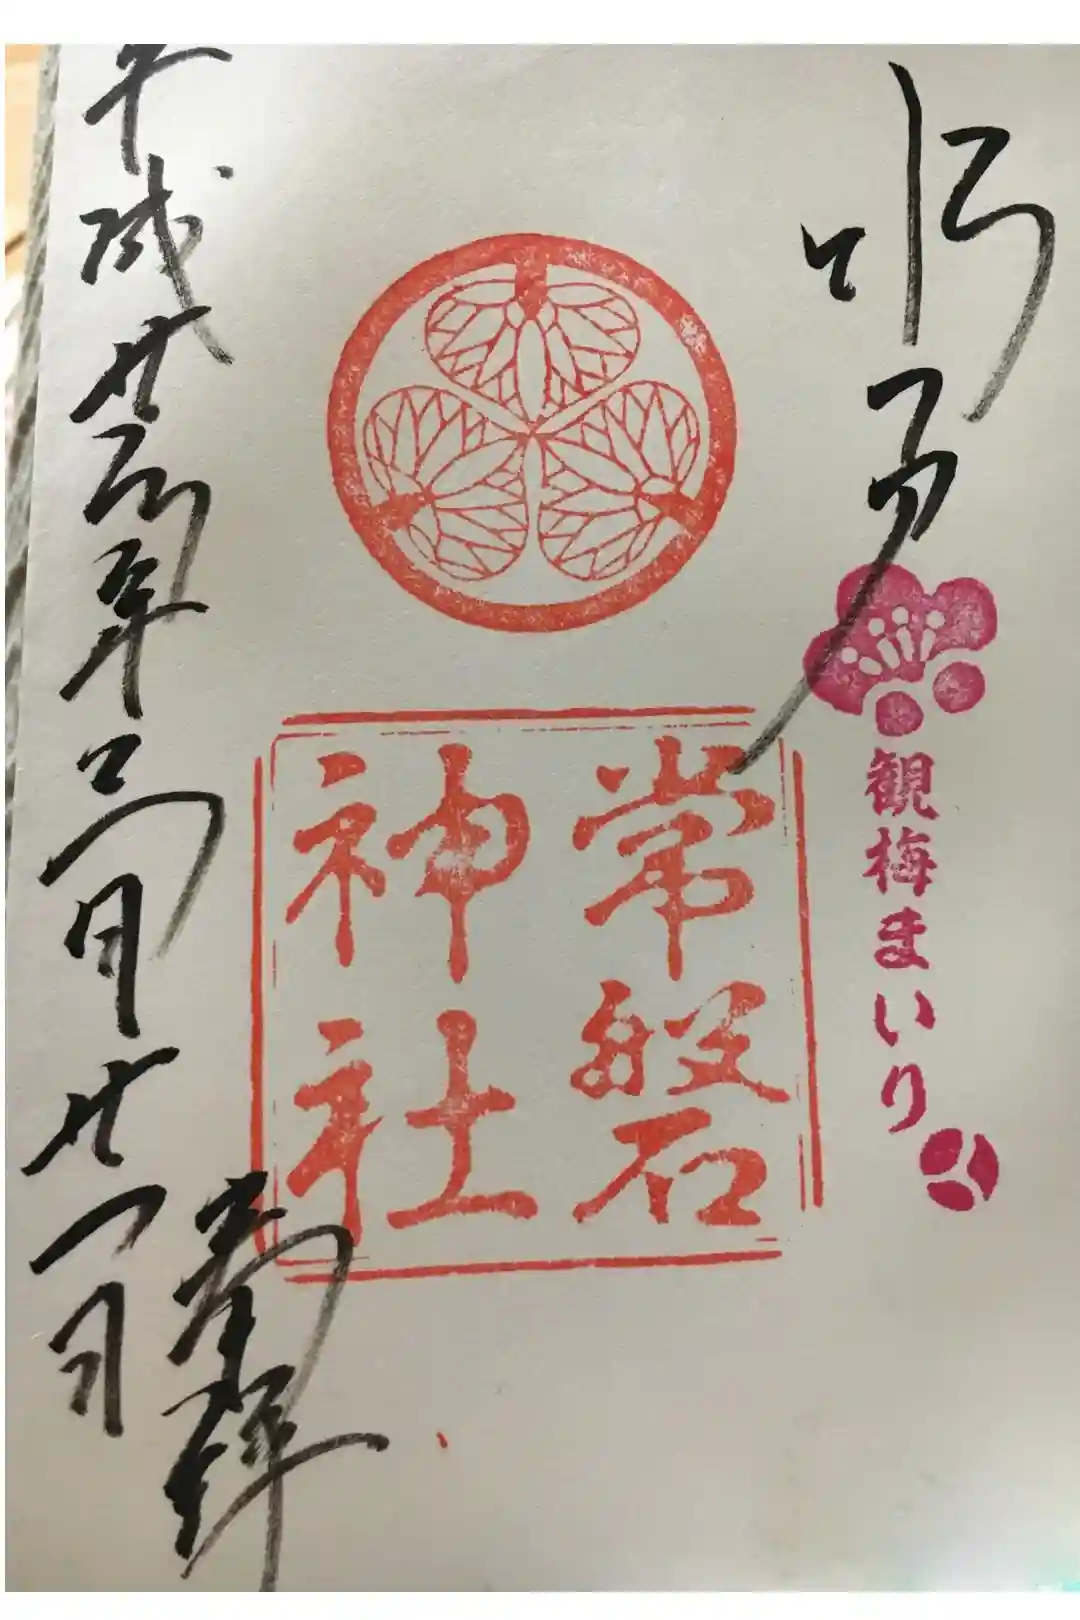 水戸
観梅まいり
常磐
神社
平成廿年月廿日
奉拝